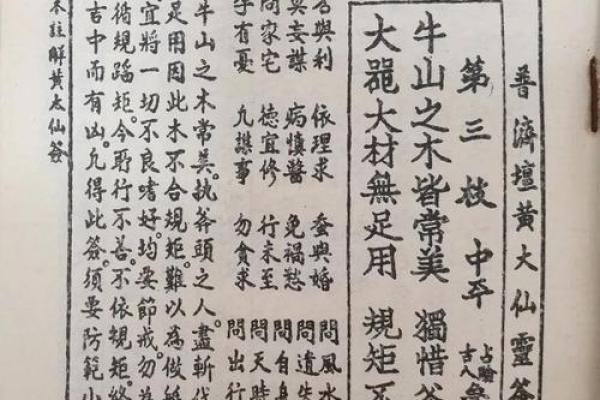 普濟壇黃大仙靈簽
第三枝 中平 占驗古人
牛山之木皆常美 獨惜斧
大器大材無足用 規矩
名與利 依理求 蚕與婚
莫妄謀 病慎醫 免禍愁
問家宅 德宜修 行未至
有憂 凡謀事 勿貪求
問風水
問遺失
問自身
問天時
問出行
牛山之木常美。执斧頭之人。盡斬伐
足用因此木不合規矩。難以為做
宜將一切不良嗜好。均要節戒。勿為
循規蹈矩。今所行不善。不依規矩。終
吉中而有凶。凡得此簽。須要防範小
本註解黃大仙簽